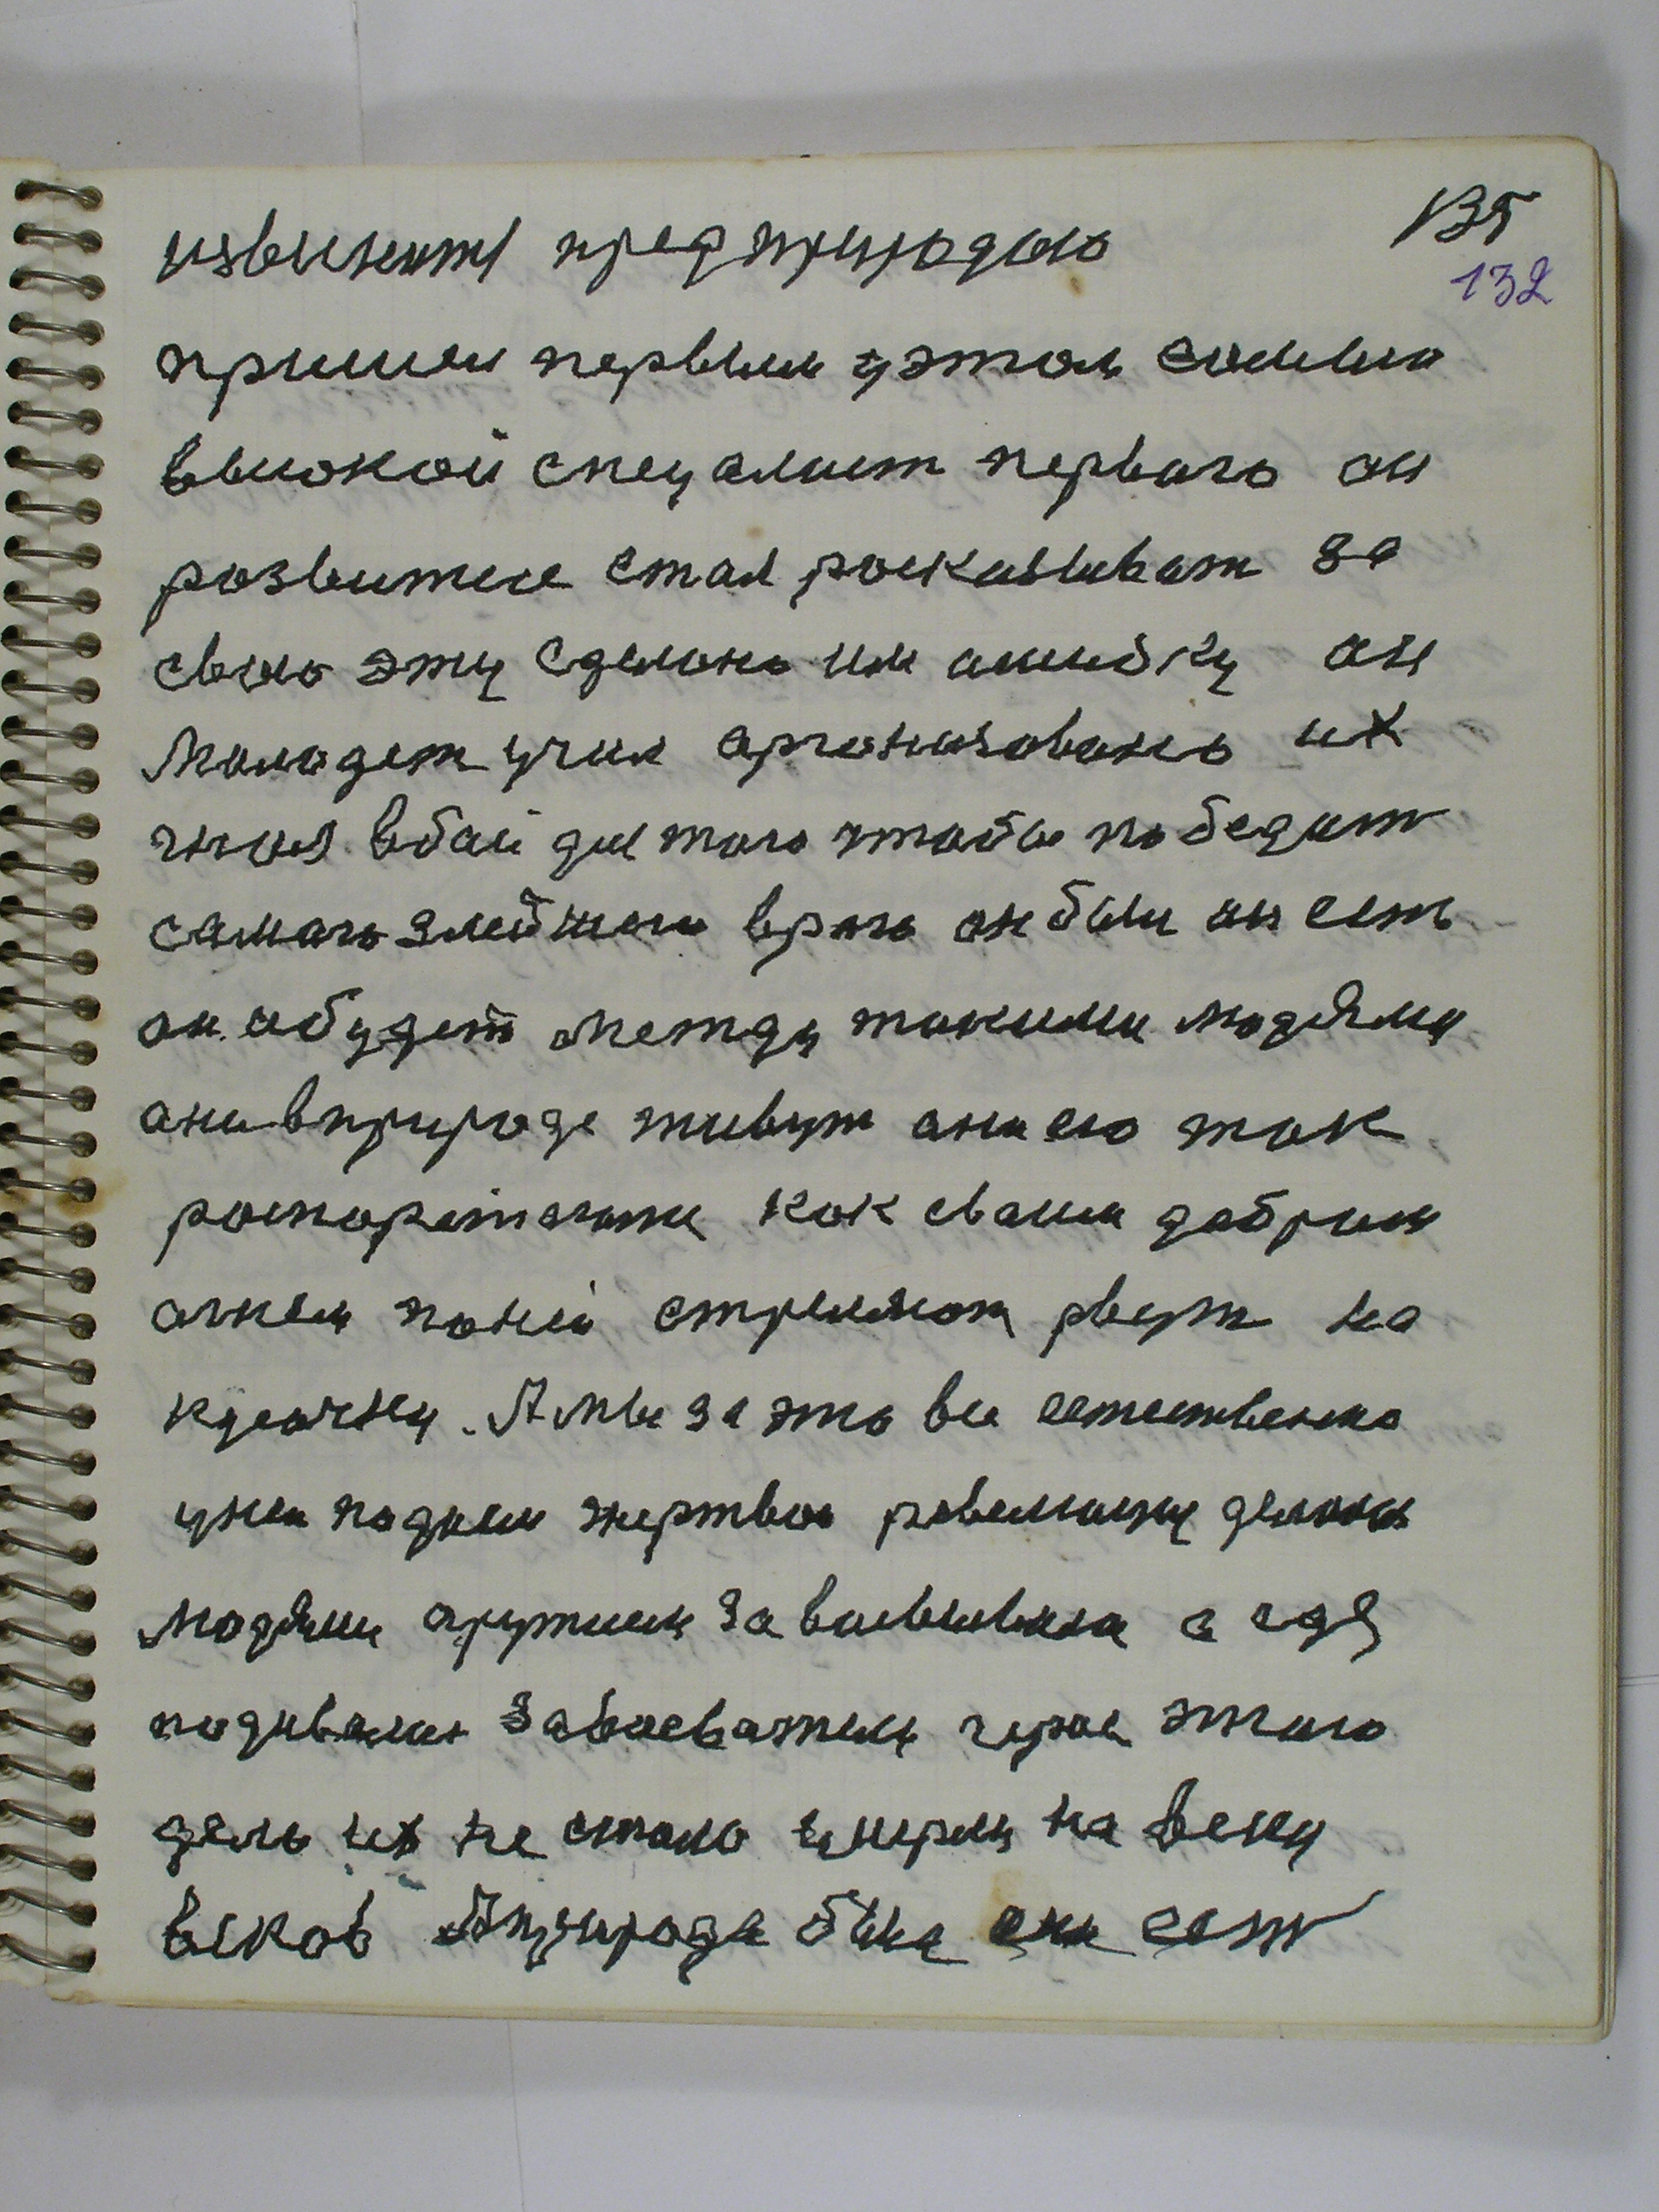 извинитя предприродою 135
132
пришол первым уэтом самыи
высокои специалист первого он
розвитие стал роскизыват за
свою эту сделоно им ашибку он
Молодеж учил органозовоно их
гнал вбаи для того чтобы победит
самаго злейшего враго он был он есть
он ибудет Между такими людями
анивприроде живут ани ею так
роспорежаютца как сваим добрым
агнем поней стреляют рвут на
кусочки. А мы за это все естественно
уней подаем жертвою
людями аружием завоевывано а где
подивалис завоеватели герои этого
дело их не стало умерли на веки
веков Априрода была ана есть